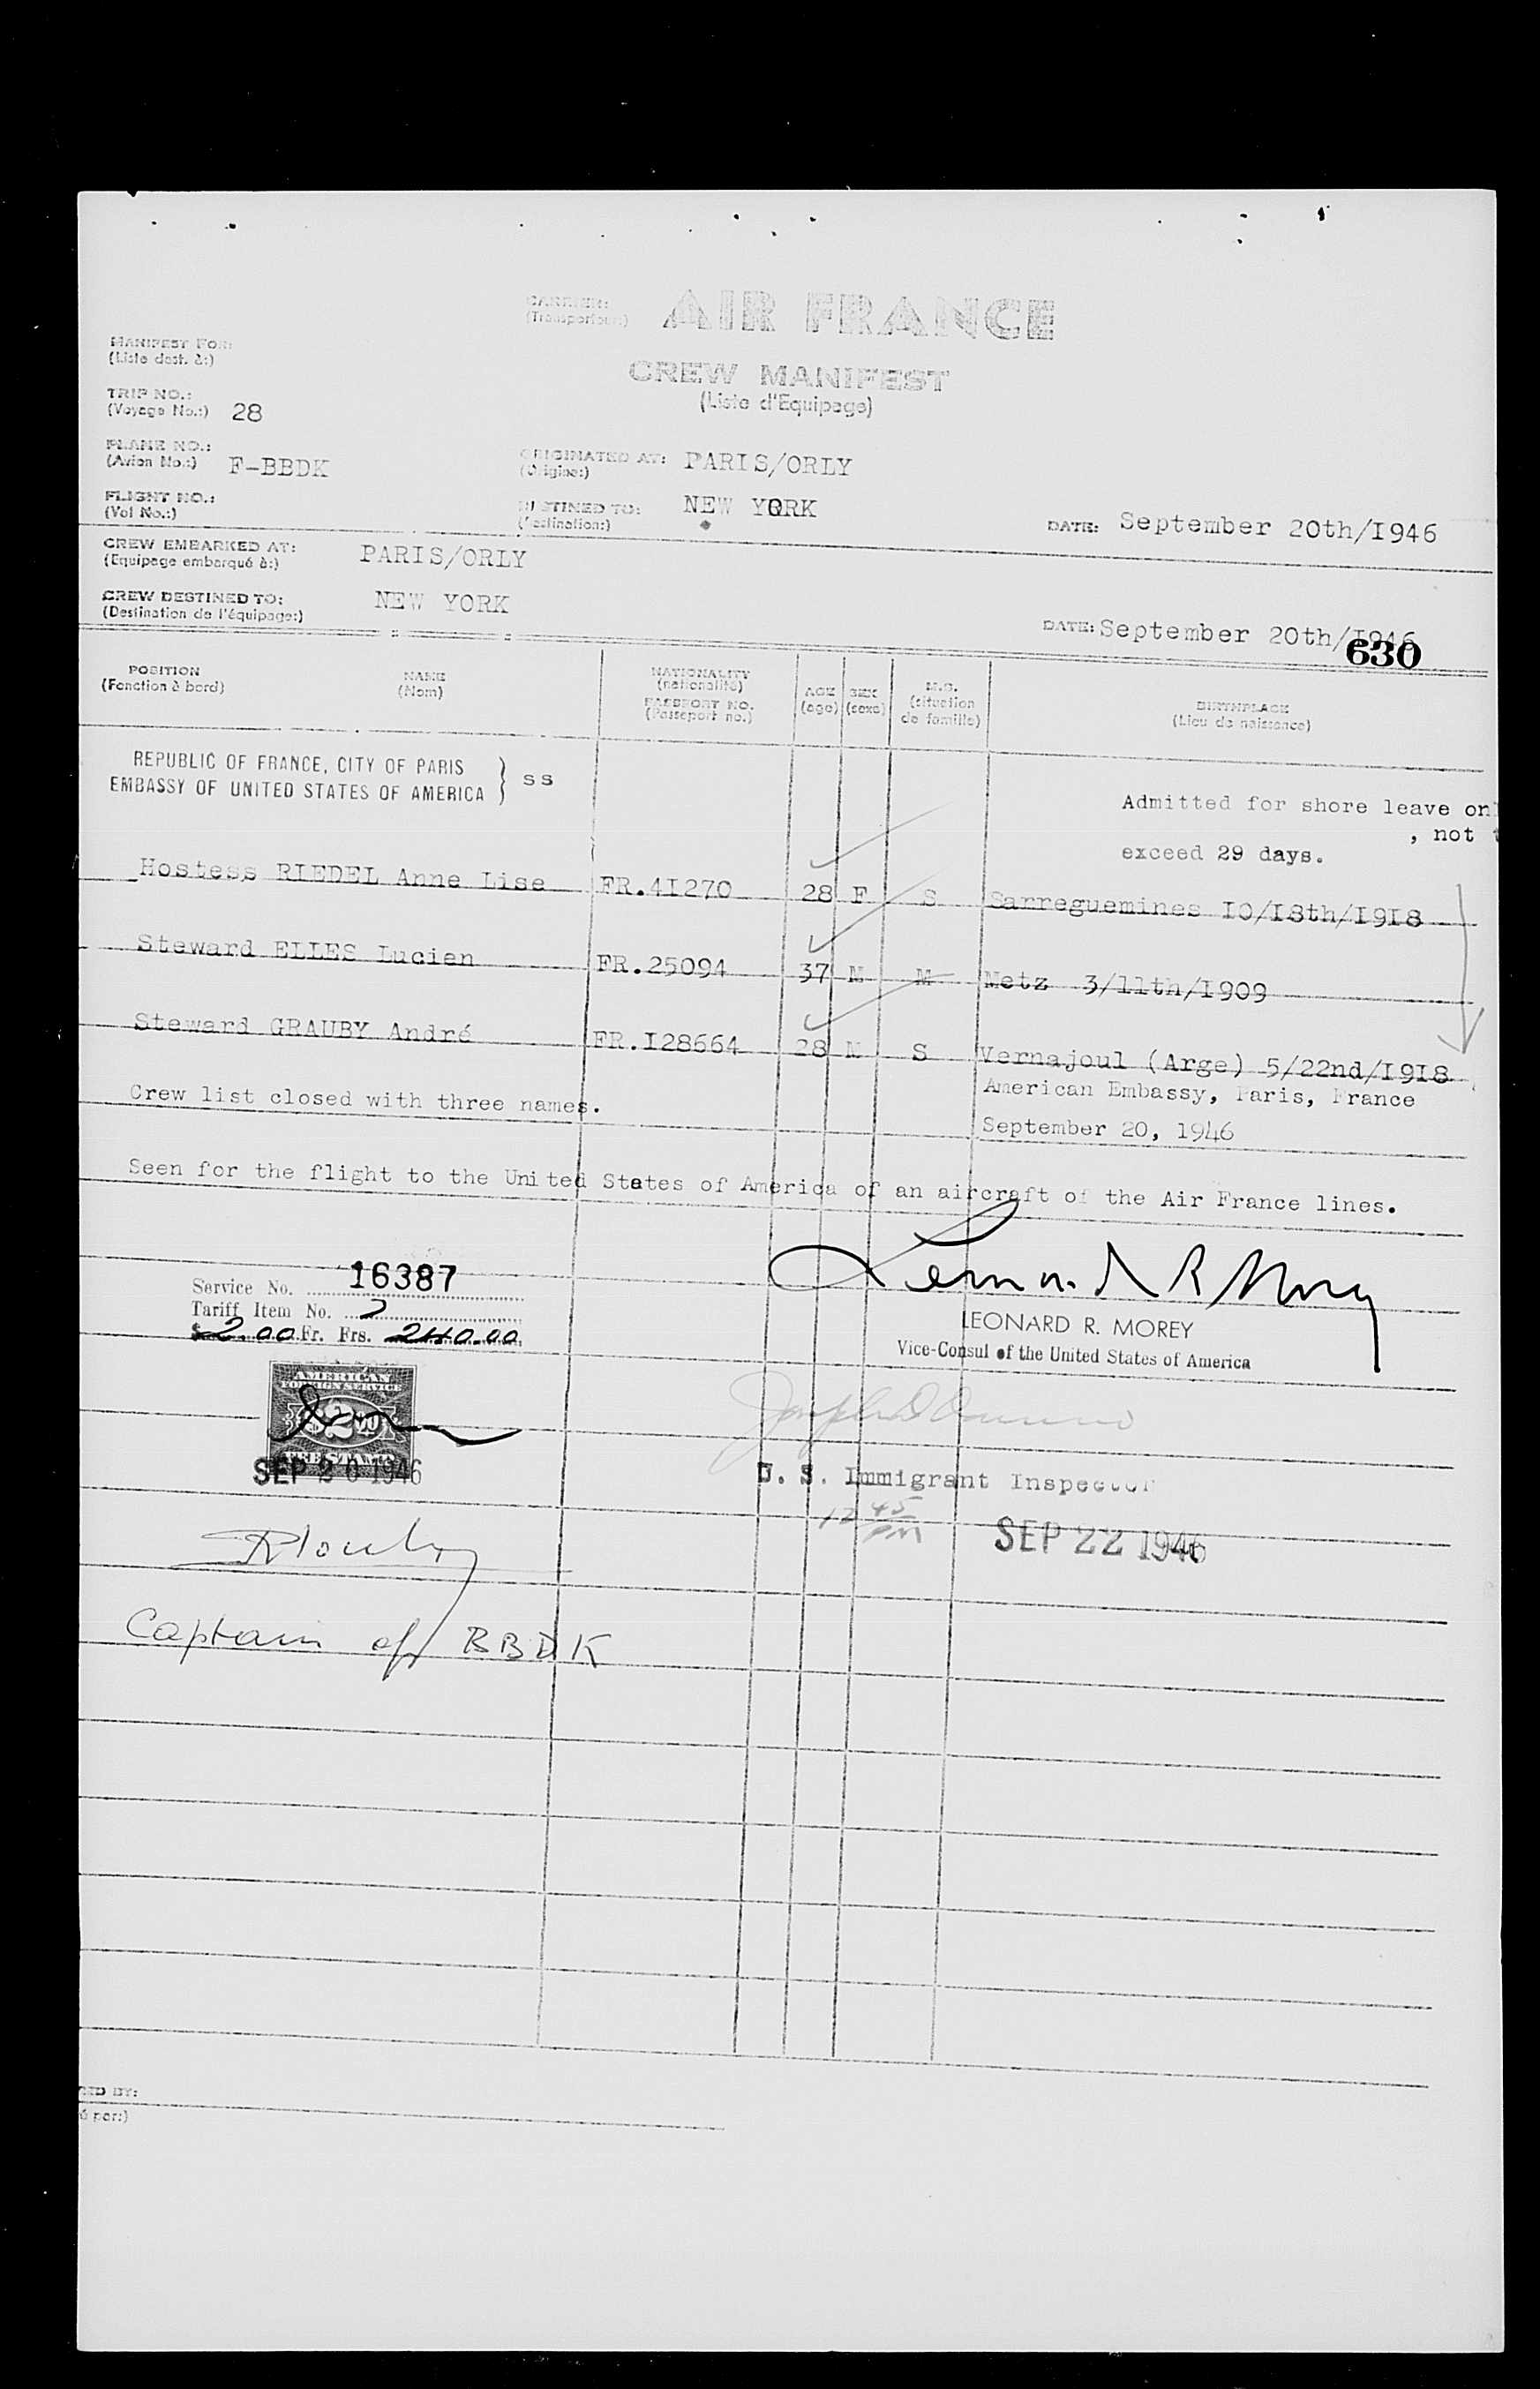 CARRIER: AIR FRANCE
(Transporteur:)
MANIFEST FOR:
(Liste dest. à:)
CREW MANIFEST
(Liste d'Equipage)
TRIP NO.:
(Voyage No.:) 28
PLANE NO.:
(Avion No.:) F-BBDK
ORIGINATED AT: PARIS/ORLY
(Origine:)
FLIGHT NO.:
(Vol No.:)
DESTINED TO: NEW YORK
(Destination:)
DATE: September 20th/I946
CREW EMBARKED AT: PARIS/ORLY
(Equipage embarqué à:)
CREW DESTINED TO: NEW YORK
(Destination de l'équipage:)
DATE: September 20th/I946
630
POSITION
(Fonction à bord)
NAME
(Nom)
NATIONALITY
(nationalité)
PASSPORT NO.
(Passeport no.)
AGE
(age)
SEX
(sexe)
M.S.
(situation
de famille)
BIRTHPLACE
(Lieu de naissance)
REPUBLIC OF FRANCE, CITY OF PARIS
EMBASSY OF UNITED STATES OF AMERICA } SS
Admitted for shore leave on
, not t
exceed 29 days.
Hostess RIEDEL Anne Lise FR.4I270 28 F S Sarreguemines I0/I8th/I9I8
Steward ELLES Lucien FR.25094 37 M M Metz 3/11th/I909
Steward GRAUBY André FR.I28664 28 M S Vernajoul (Arge) 5/22nd/I9I8
American Embassy, Paris, France
Crew list closed with three names.
September 20, 1946
Seen for the flight to the United States of America of an aircraft of the Air France lines.
Service No. 16387
Tariff Item No. 7
$2.00 Fr. Frs. 240.00
Leonard R Morey
LEONARD R. MOREY
Vice-Consul of the United States of America
AMERICAN
FOREIGN SERVICE
$2.00
FEE STAMP
SEP 20 1946
U. S. Immigrant Inspector
12 45 PM
SEP 22 1946
Captain of BBDK
ED BY:
é par:)